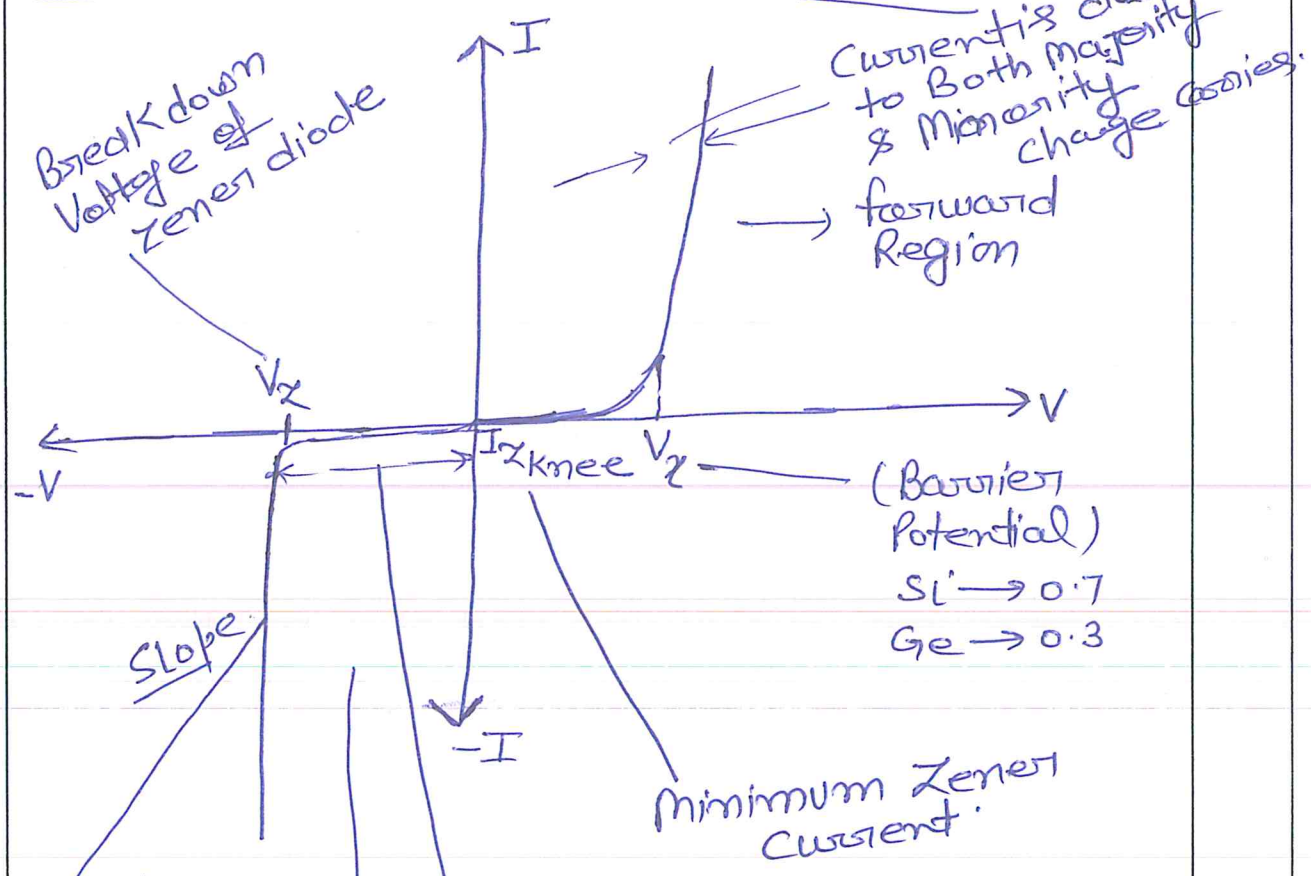 I
Breakdown
Voltage of
Zener diode
Current is
to Both Majority
& Mionority
charge carries.
→ forward
Region
Vz
V
-V
IzKnee
Vγ
(Barrier
Potential)
Si → 0.7
Ge → 0.3
Slope
-I
Minimum Zener
Current.